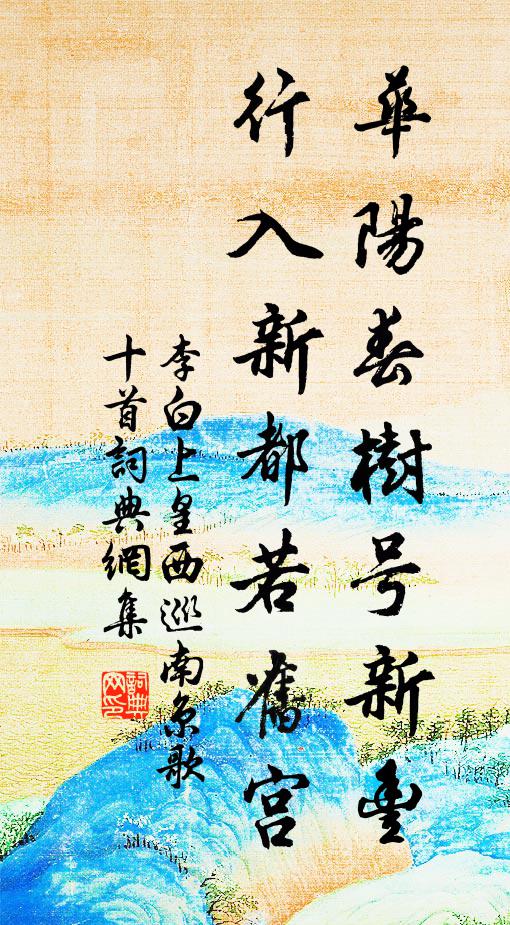 華陽春樹号新豐
行入新都若舊宮
李白上皇西巡南京歌
十首詞典網集
詞典
网印